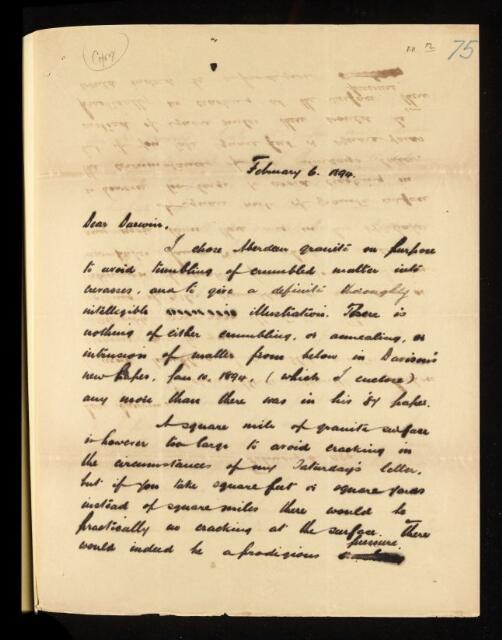 Copy
75
February 6. 1894.
Dear Darwin,
I chose Aberdeen granite on purpose
to avoid tumbling of crumbled matter into
crevasses, and to give a definite thoroughly
intelligible illustration. There is
nothing of either crumbling, or annealing, or
intrusion of matter from below in Davison's
new paper, Jan 10, 1894, (which I enclose)
any more than there was in his '87 paper.
A square mile of granite surface
is however too large to avoid cracking in
the circumstances of my Saturday's letter,
but if you take square feet or square yards
instead of square miles there would be
practically no cracking at the surface. There
would indeed be a prodigious pressure